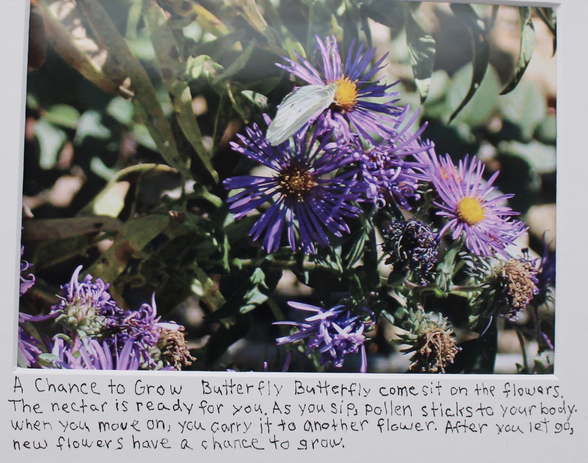 A Chance to Grow Butterfly Butterfly come sit on the flowers.
The nectar is ready for you. As you sip, pollen sticks to your body.
when you move on, you carry it to another flower. After you let go,
new flowers have a chance to grow.